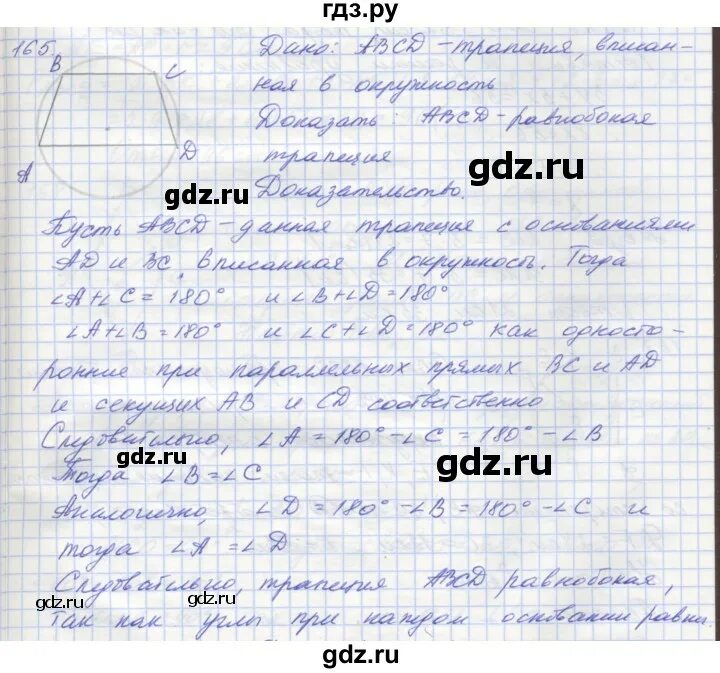 гдз.ру
165.
Дано: ABCD - трапеция, вписан-
ная в окружность
Доказать: ABCD - равнобокая
трапеция
Доказательство.
B
C
A
D
gdz.ru
gdz.ru
gdz.ru
Пусть ABCD - данная трапеция с основаниями
AD и BC, вписанная в окружность. Тогда
∠A+∠C = 180° и ∠B+∠D=180°
∠A+∠B = 180° и ∠C+∠D=180° как одност
о-
ронние при параллельных прямых BC и AD
и секущих AB и CD соответственно
Следовательно, ∠A = 180° - ∠C = 180° - ∠B
Тогда ∠B = ∠C
gdz.ru
gdz.ru
Аналогично, ∠D = 180° - ∠B = 180° - ∠C и
тогда ∠A = ∠D
Следовательно, трапеция ABCD равнобокая,
gdz.ru
gdz.ru
так как углы при каждом основании равны.
gdz.ru